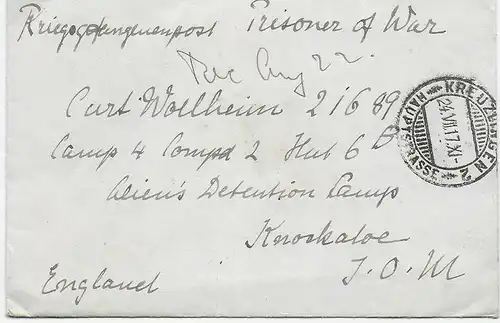 Kriegsgefangenenpost Prisoner of War
Rec Aug 22.
Curt Wollheim 21689
Camp 4 Compd 2 Hut 6B
Alien's Detention Camp
Knockaloe
I.O.M
England
KREUZLINGEN 2
24.VII.17.XI-
HAUPTSTRASSE